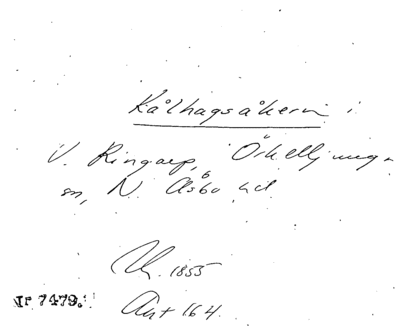 Kålhagsåkern i
V. Ringarp, Örkelljunga
sn, N Åsbo hd
1855
Akt 164.
Nr 7479.